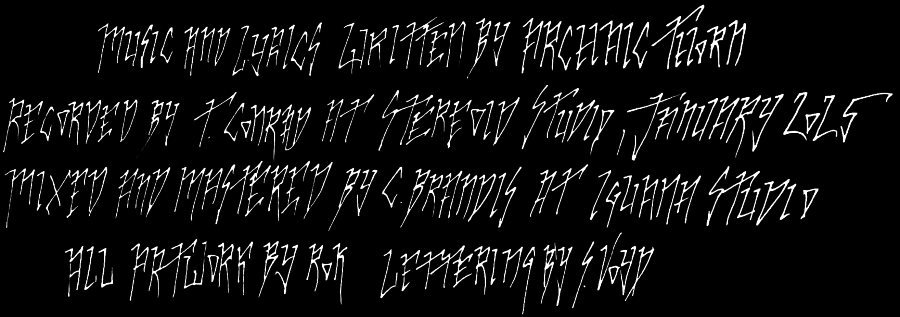 MUSIC AND LYRICS WRITTEN BY ARCHAIC THORN
RECORDED BY T. CONRAD AT STEREOLD STUDIO, JANUARY 2025
MIXED AND MASTERED BY C. BRANDIS AT IGUANA STUDIO
ALL ARTWORK BY ROK LETTERING BY S. VOYD